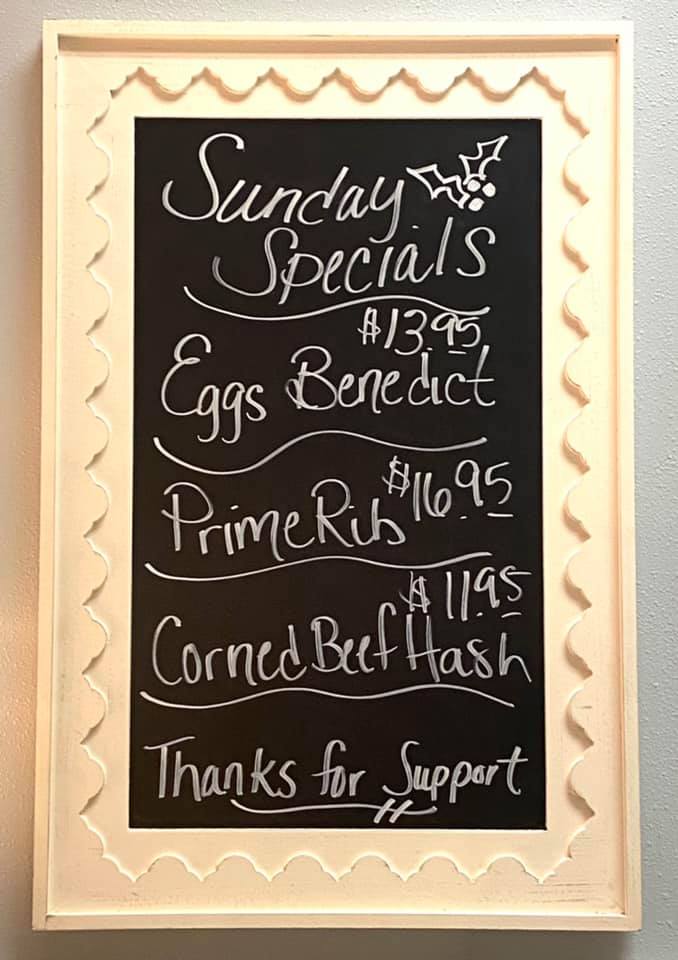 Sunday
Specials
$13.95
Eggs Benedict
$16.95
Prime Rib
$11.95
Corned Beef Hash
Thanks for Support